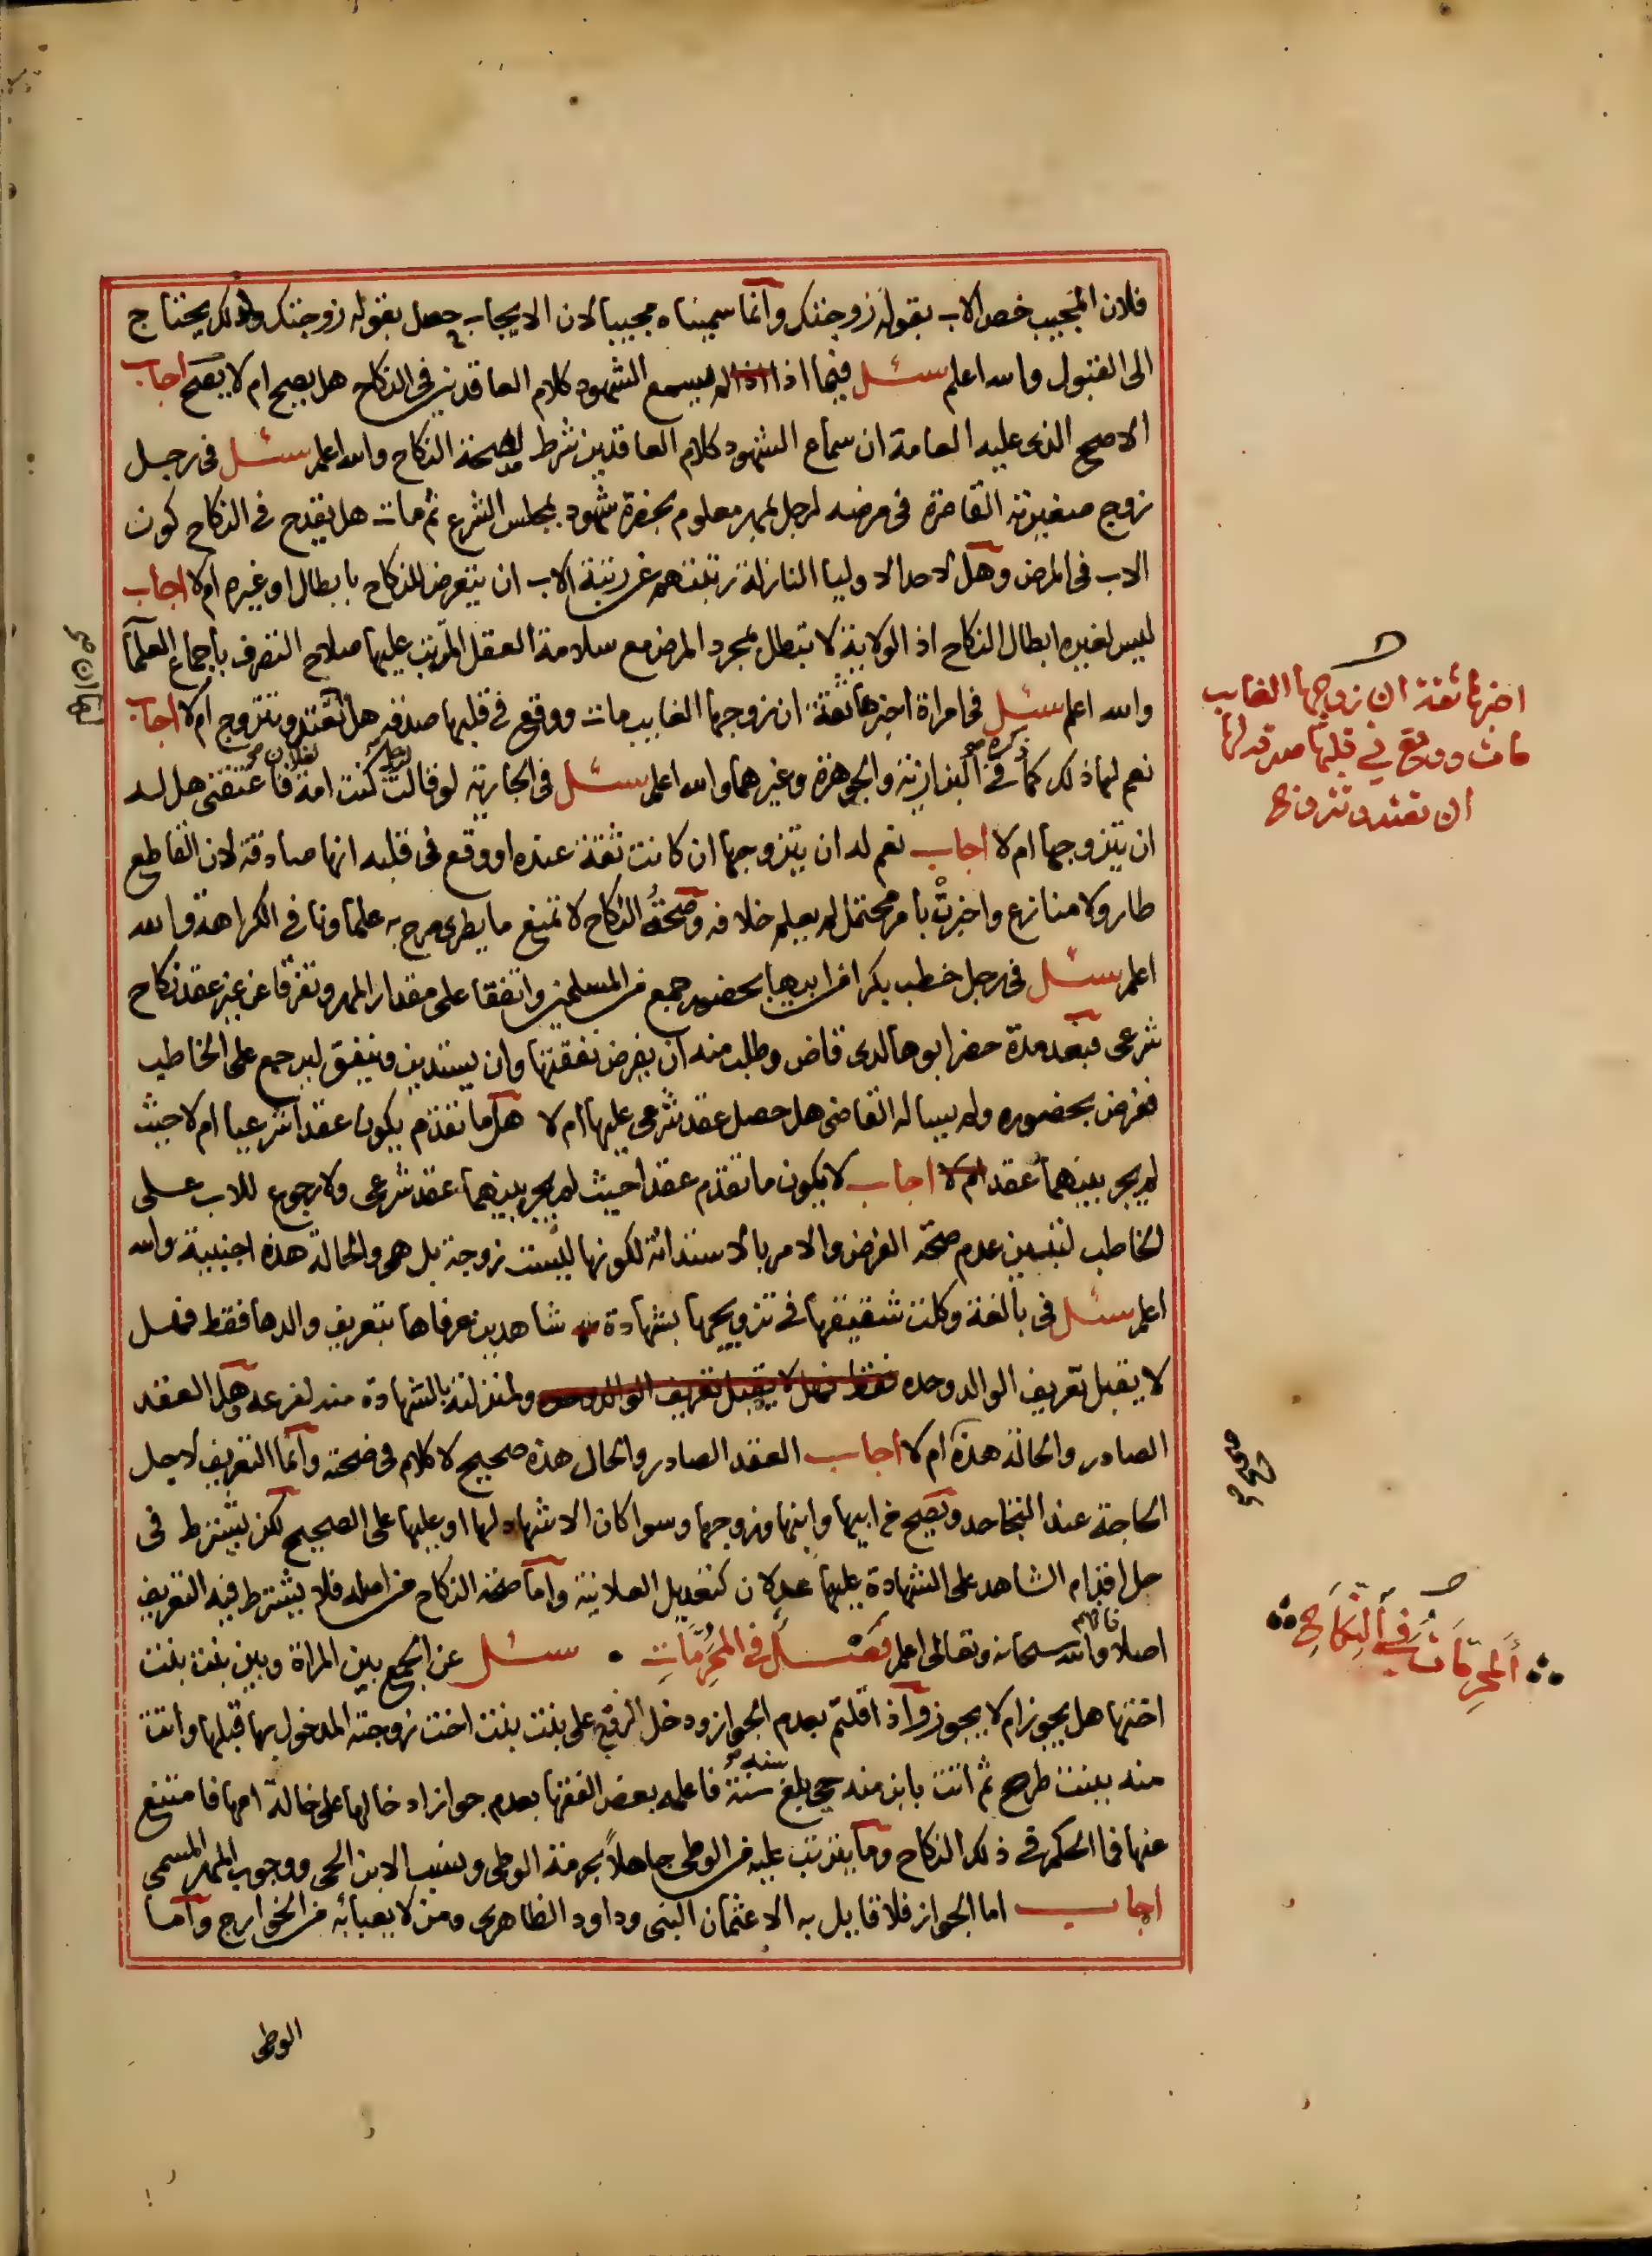 فلان المجيب خص الاب بقوله زوجتك وانما سميناه مجيبا لان الايجاب حصل بقوله زوجتك ولذلك يحتاج
الى القبول والله اعلم سئل فيما اذا لم يسمع الشهود كلام العاقدين في النكاح هل يصح ام لا يصح اجاب
الاصح الذي عليه العامة ان سماع الشهود كلام العاقدين شرط لصحة النكاح والله اعلم سئل في رجل
زوج صغيرته القاصرة في مرضه لرجل بمهر معلوم بحضرة شهود بمجلس الشرع ثم مات هل يقدح في النكاح كون
الاب في المرض وهل لاحد الاوليا النازلة رتبتهم عن رتبة الاب ان يتعرض للنكاح بابطال او غيره ام لا اجاب
ليس لغيره ابطال النكاح اذ الولاية لا تبطل بمجرد المرض مع سلامة العقل المرتب عليها صلاح التصرف باجماع العلما
والله اعلم سئل في امراة اخبرها ثقة ان زوجها الغايب مات ووقع في قلبها صدقه هل تعتد وتتزوج ام لا اجاب
نعم لها ذلك كما ذكره في البزازية والجوهرة وغيرهما والله اعلم سئل في الجارية لو قالت لرجل كنت امة لفلان فاعتقني هل له
ان يتزوجها ام لا اجاب نعم له ان يتزوجها ان كانت ثقة عنده او وقع في قلبه انها صادقة لان القاطع
طار ولا منازع واخبرت بامر محتمل لم يعلم خلافه وصحة النكاح لا تمنع ما يطرى صرح به علماونا في الكراهة والله
اعلم سئل في رجل خطب بكرا من ابيها بحضور جمع من المسلمين واتفقا على مقدار المهر وتفرقا عن غير عقد نكاح
شرعي فبعد مدة حضر ابوها لدى قاض وطلب منه ان يفرض نفقتها وان يستدين وينفق ليرجع على الخاطب
ففرض بحضوره ولم يساله القاضي هل حصل عقد شرعي عليها ام لا هل ما تقدم يكون عقدا شرعيا ام لا حيث
لم يجر بينهما عقد ام لا اجاب لا يكون ما تقدم عقدا حيث لم يجر بينهما عقد شرعي ولا رجوع للاب على
الخاطب لتبين عدم صحة الفرض والامر بالاستدانة لكونها ليست زوجة بل هي والحالة هذه اجنبية والله
اعلم سئل في بالغة وكلت شقيقها في تزويجها بشهادة شاهدين عرفاها بتعريف والدها فقط فهل
لا يقبل تعريف الوالد وحده فقط فهل لا يقبل تعريف الوالد وحده ولمنزلته بالشهادة منه لفرعه وهل العقد
الصادر والحالة هذه ام لا اجاب العقد الصادر والحال هذه صحيح لا كلام في صحته وانما التعريف لاجل
الحاجة عند التجاحد ويصح من ابيها وابنها وزوجها وسوا كان الاشهاد لها او عليها على الصحيح لكن يشترط في
حل اقدام الشاهد على الشهادة عليها عدلان كتعديل العلانية واما صحة النكاح من اصله فلا يشترط فيه التعريف
اصلا فافهم والله سبحانه وتعالى اعلم فصل في المحرمات سئل عن الجمع بين المراة وبين بنت بنت
اختها هل يجوز ام لا يجوز واذا قلتم بعدم الجواز ودخل الزوج على بنت بنت اخت زوجته المدخول بها قبلها واتت
منه ببنت طرح ثم اتت بابن منه حي بلغ سنة فاعلمه بعض الفقها بعدم جواز ادخالها على خالة امها فامتنع
عنها فما الحكم في ذلك النكاح وما يترتب عليه من الوطي جاهلا بحرمة الوطي ونسب الابن الحي ووجوب المهر المسمى
اجاب اما الجواز فلا قايل به الا عثمان البتي وداود الظاهري ومن لا يعبا به من الخوارج واما
الوطي
اخبرها ثقة ان زوجها الغايب
مات ووقع في قلبها صدقه لها
ان تعتد وتتزوج
المحرمات في النكاح